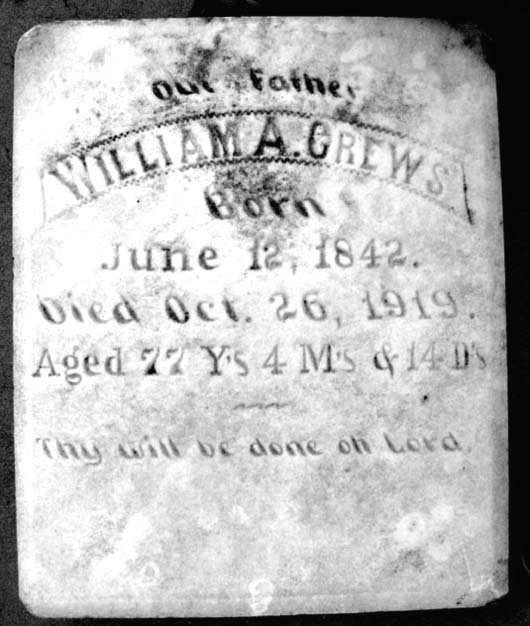 Our Father
WILLIAM A. CREWS.
Born
June 12, 1842.
Died Oct. 26, 1919.
Aged 77 Y's 4 M's & 14 D's
Thy will be done oh Lord.